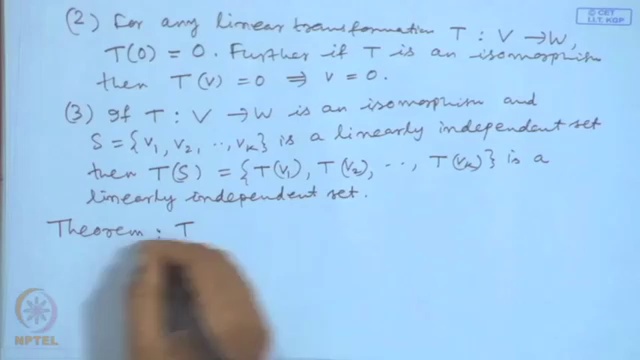 © CET
I.I.T. KGP
(2) For any linear transformation T : V → W,
T(0) = 0. Further if T is an isomorphism
then T(v) = 0 ⟹ v = 0.
(3) If T : V → W is an isomorphism and
S = {v₁, v₂, .., vₖ} is a linearly independent set
then T(S) = {T(v₁), T(v₂), .., T(vₖ)} is a
linearly independent set.
Theorem : T
NPTEL